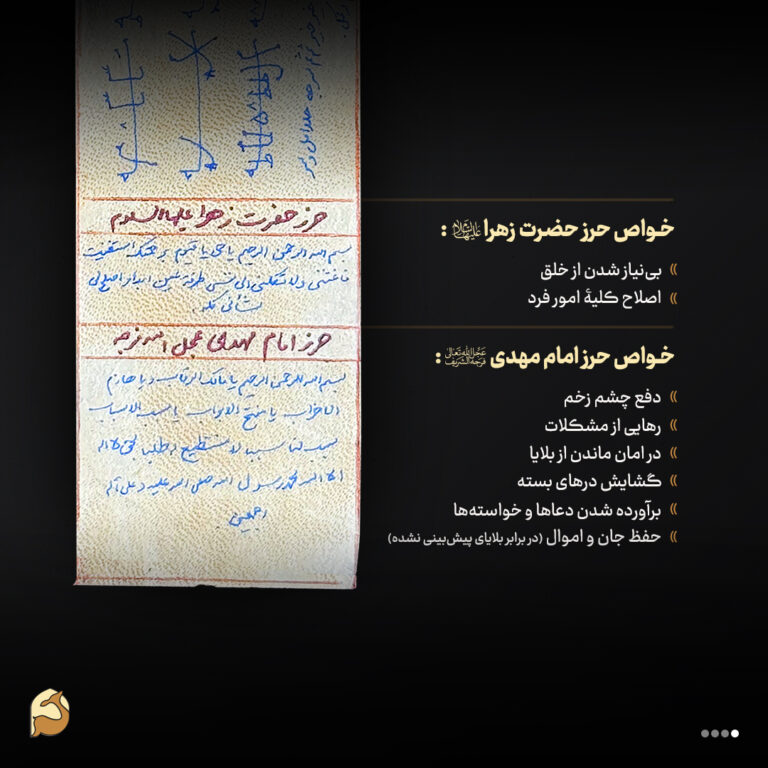 حرز حضرت زهرا علیها السلام
بسم الله الرحمن الرحیم یا حی یا قیوم برحمتک استغیث
فاغثنی ولا تکلنی الی نفسی طرفة عین ابدا و اصلح لی
شأنی کله
حرز امام مهدی عجل الله فرجه
بسم الله الرحمن الرحیم یا مالک الرقاب و یا هازم
الاحزاب یا مفتح الابواب یا مسبب الاسباب
سبب لنا سببا لا نستطیع له طلبا بحق لا اله
الا الله محمد رسول الله صلی الله علیه و علی آله
اجمعین
خواص حرز حضرت زهرا علیهاالسلام :
بی‌نیاز شدن از خلق
اصلاح کلیۀ امور فرد
خواص حرز امام مهدی عجل الله تعالی فرجه الشریف :
دفع چشم زخم
رهایی از مشکلات
در امان ماندن از بلایا
گشایش درهای بسته
برآورده شدن دعاها و خواسته‌ها
حفظ جان و اموال (در برابر بلایای پیش‌بینی نشده)